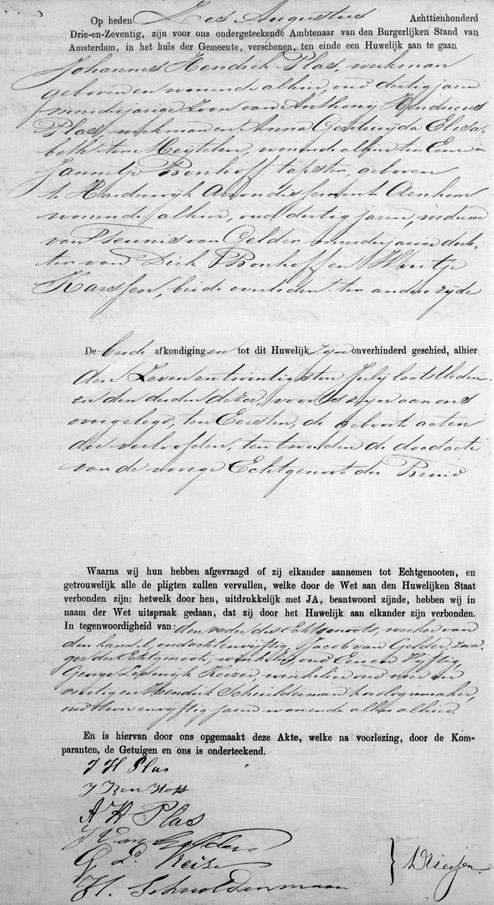 Op heden Zes Augustus Achttienhonderd
Drie-en-Zeventig, zijn voor ons ondergeteekende Ambtenaar van den Burgerlijken Stand van
Amsterdam, in het huis der Gemeente, verschenen, ten einde een Huwelijk aan te gaan
Johannes Hendrik Plas, werkman
geboren en wonende alhier, oud dertig jaren
meerderjarige Zoon van Anthonij Hendricus
Plas, werkman en Anna Geertruijda Elisa
beth wonende alhier ten Eene en
Jannetje Bonhoff, tapster, geboren
te Harderwijk Arrondissement Arnhem
wonende alhier, oud dertig jaren, weduwe
van Teunis van Gelder meerderjarige doch-
ter van Dirk Bonhoff en Woutje
Karssen, beide overleden ten andere zijde
De beide afkondigingen tot dit Huwelijk zijn onverhinderd geschied, alhier
den Zeven en twintigsten Julij laatstleden
en den derden dezer, voorts zijn aan ons
overgelegd, ten Eersten, de geboorte acten
der verloofden, ten tweeden de doodacte
van de vorige Echtgenoot der Bruid
Waarna wij hun hebben afgevraagd of zij elkander aannemen tot Echtgenooten, en
getrouwelijk alle de pligten zullen vervullen, welke door de Wet aan den Huwelijken Staat
verbonden zijn: hetwelk door hen, uitdrukkelijk met JA, beantwoord zijnde, hebben wij in
naam der Wet uitspraak gedaan, dat zij door het Huwelijk aan elkander zijn verbonden.
In tegenwoordigheid van: den vader des Echtgenoots, van
den handel, oud achtenvijftig, Jacob van Gelder, zwa
ger der Echtgenoote, winkelier oud Eenen Vijftig
George Lodewijk Keizer, winkelier oud
veertig en Hendrik horlogiemaker,
oud vijftig jaren wonende allen alhier.
En is hiervan door ons opgemaakt deze Akte, welke na voorlezing, door de Kom-
paranten, de Getuigen en ons is onderteekend.
J H Plas
J Bonhoff
A H Plas
J van Gelder
G L Keizer
H.